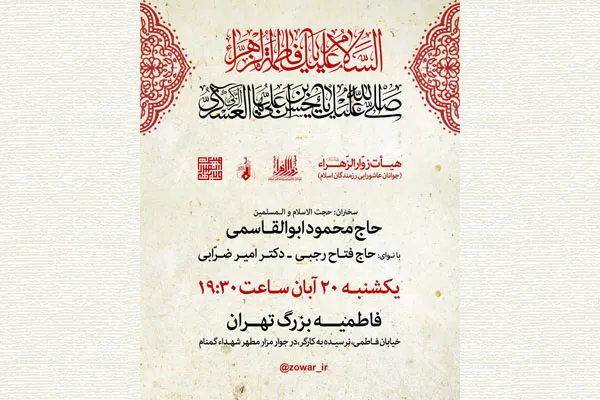 السلام علیک یا فاطمة الزهراء
صلی الله علیک یا حسن بن علی ایها العسکری
هیأت زوار الزهراء
(جوانان عاشورایی رزمندگان اسلام)
سخنران: حجت الاسلام و المسلمین
حاج محمود ابوالقاسمی
با نوای: حاج فتاح رجبی - دکتر امیر ضرّابی
یکشنبه ۲۰ آبان ساعت ۱۹:۳۰
فاطمیه بزرگ تهران
خیابان فاطمی، نرسیده به کارگر، در جوار مزار مطهر شهداء گمنام
@zowar_ir